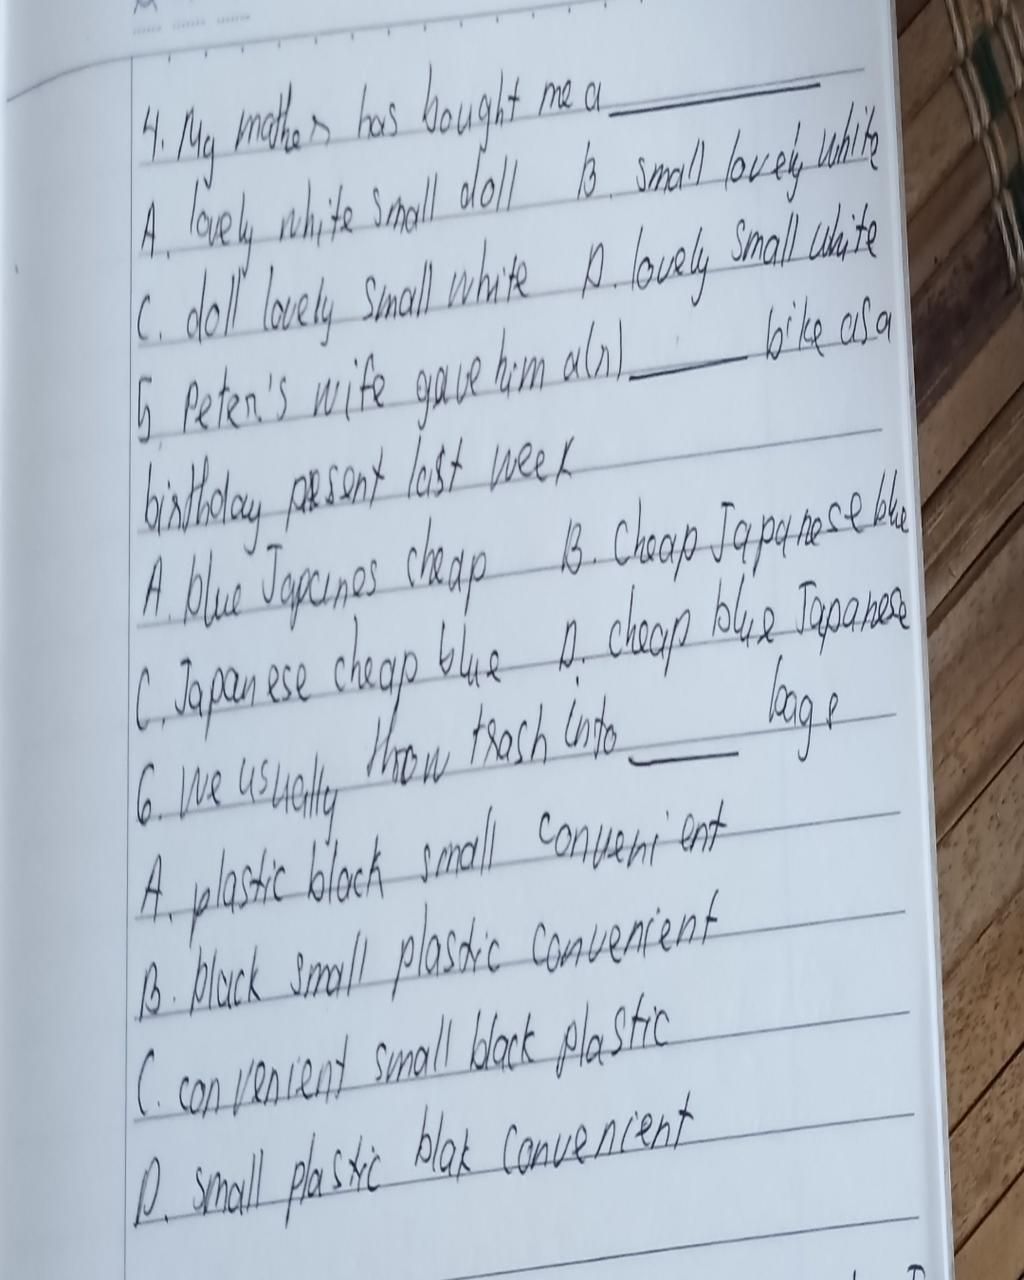 4. My mother has bought me a ________
A. lovely white small doll B. small lovely white
C. doll lovely small white D. lovely small white
5. Peter's wife gave him a(n) ____ bike as a
birthday present last week
A. blue Japanes cheap B. cheap Japanese blue
C. Japanese cheap blue D. cheap blue Japanese
6. We usually throw trash into ____ bags
A. plastic black small convenient
B. black small plastic convenient
C. convenient small black plastic
D. small plastic blak convenient